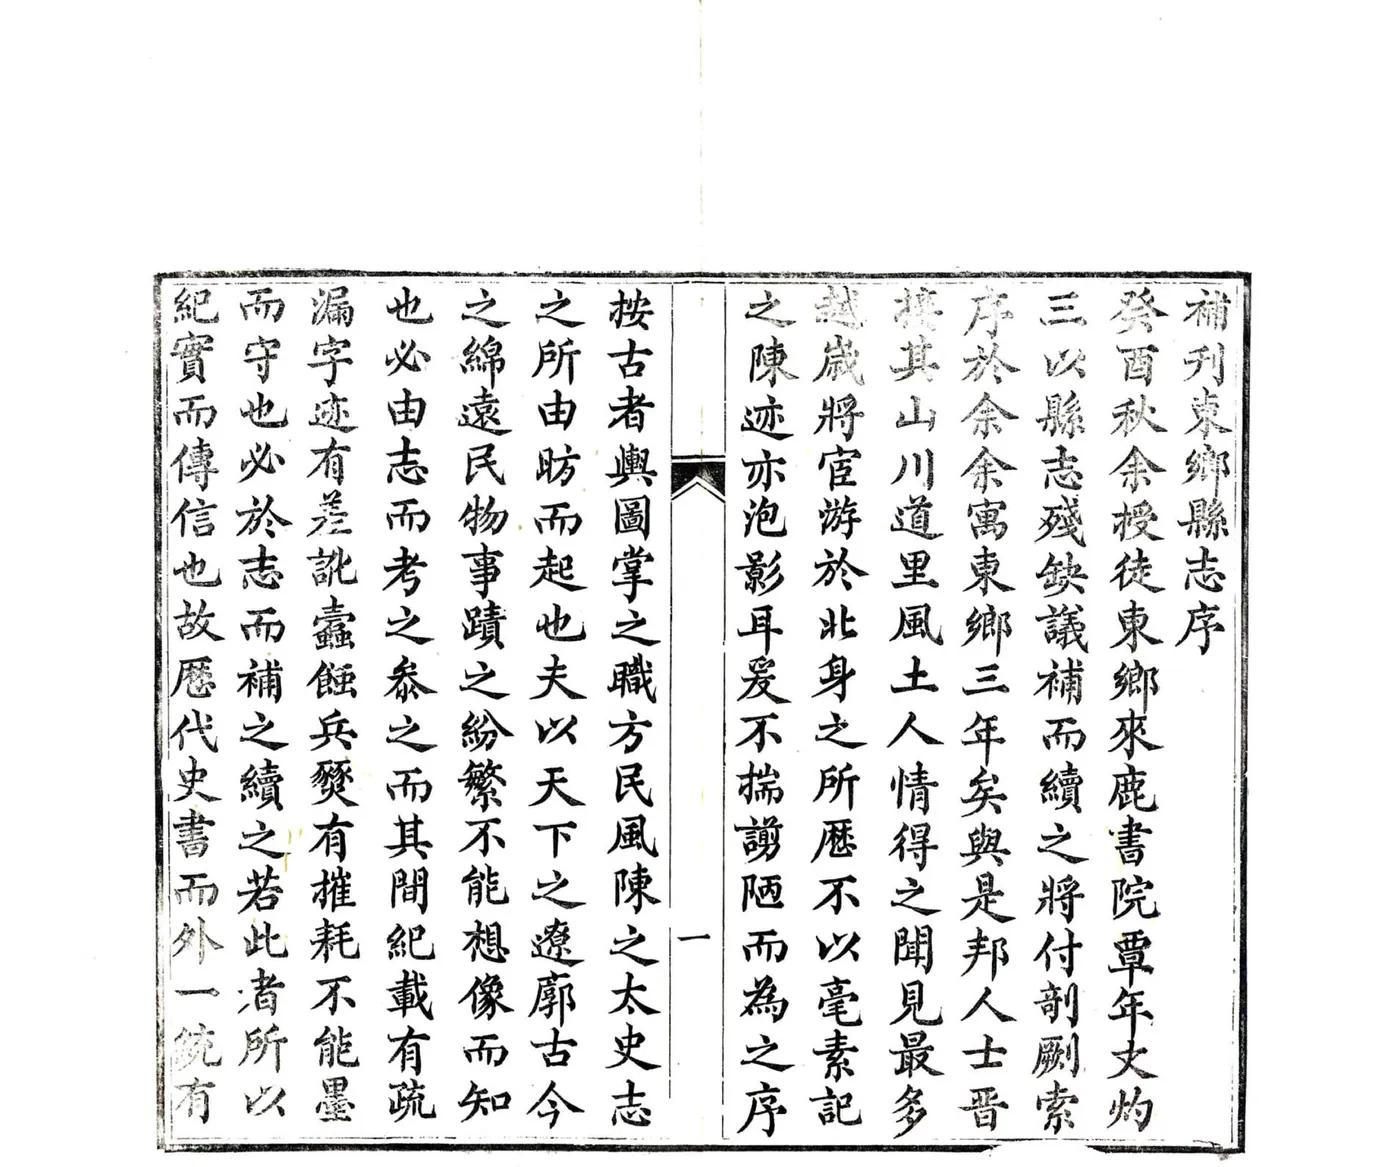 補刊東鄉縣志序
癸酉秋余授徒東鄉來鹿書院覃年丈灼
三以縣志殘缺議補而續之將付剞劂索
序於余余寓東鄉三年矣與是邦人士晋
接其山川道里風土人情得之聞見最多
越歲將宦游於北身之所歷不以毫素記
之陳迹亦泡影耳爰不揣謭陋而為之序
一
按古者輿圖掌之職方民風陳之太史志
之所由昉而起也夫以天下之遼廓古今
之綿遠民物事蹟之紛繁不能想像而知
也必由志而考之叅之而其間紀載有疏
漏字迹有差訛蠹蝕兵燹有摧耗不能墨
而守也必於志而補之續之若此者所以
紀實而傳信也故歷代史書而外一統有